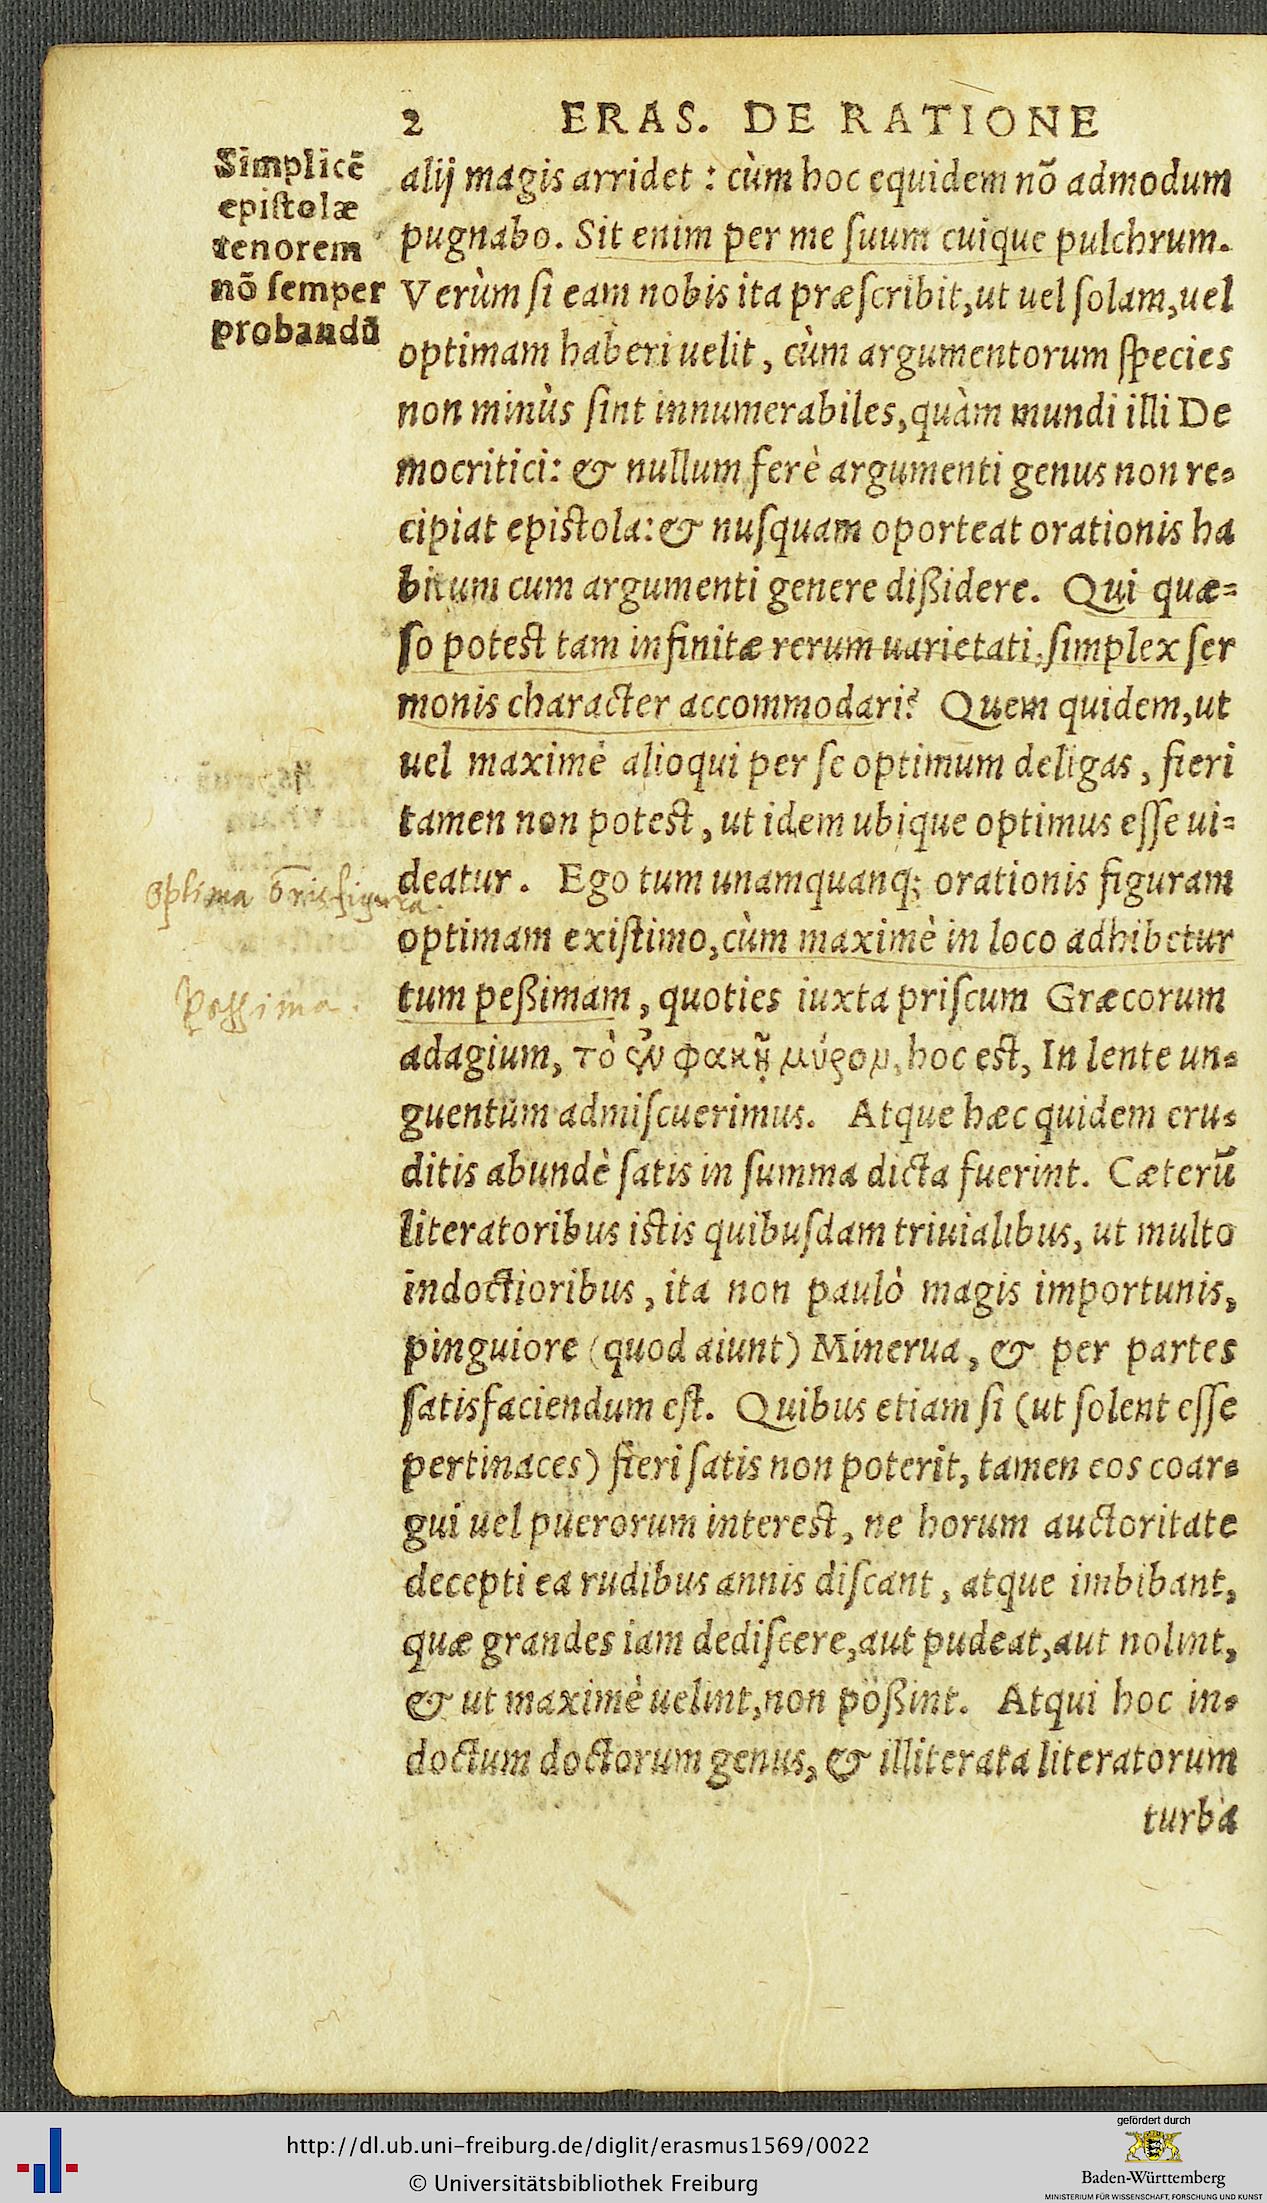 2 ERAS. DE RATIONE
Simplicē
epiſtolæ
tenorem
nō ſemper
probandū
alij magis arridet : cùm hoc equidem nō admodum
pugnabo. Sit enim per me ſuum cuique pulchrum.
Verùm ſi eam nobis ita præſcribit,ut uel ſolam,uel
optimam haberi uelit, cùm argumentorum ſpecies
non minùs ſint innumerabiles,quàm mundi illi De
mocritici: & nullum ferè argumenti genus non re-
cipiat epiſtola:& nuſquam oporteat orationis ha
bitum cum argumenti genere dißidere. Qui quæ-
ſo poteſt tam infinitæ rerum uarietati,ſimplex ſer
monis character accommodari? Quem quidem,ut
uel maximè alioqui per ſe optimum deligas, fieri
tamen non poteſt, ut idem ubique optimus eſſe ui-
deatur. Ego tum unamquanq; orationis figuram
optima orōnis figura.
optimam exiſtimo,cùm maximè in loco adhibetur
peſſima.
tum peßimam, quoties iuxta priſcum Græcorum
adagium, τὸ ἐν φακῇ μύρον, hoc eſt, In lente un-
guentum admiſcuerimus. Atque hæc quidem eru-
ditis abundè ſatis in ſumma dicta fuerint. Cæterū
literatoribus iſtis quibuſdam triuialibus, ut multo
indoctioribus, ita non paulò magis importunis,
pinguiore (quod aiunt) Minerua, & per partes
ſatisfaciendum eſt. Quibus etiam ſi (ut ſolent eſſe
pertinaces) fieri ſatis non poterit, tamen eos coar-
gui uel puerorum intereſt, ne horum auctoritate
decepti ea rudibus annis diſcant, atque imbibant,
quæ grandes iam dediſcere,aut pudeat,aut nolint,
& ut maximè uelint,non poßint. Atqui hoc in-
doctum doctorum genus, & illiterata literatorum
turba
http://dl.ub.uni-freiburg.de/diglit/erasmus1569/0022
© Universitätsbibliothek Freiburg
gefördert durch
Baden-Württemberg
MINISTERIUM FÜR WISSENSCHAFT, FORSCHUNG UND KUNST